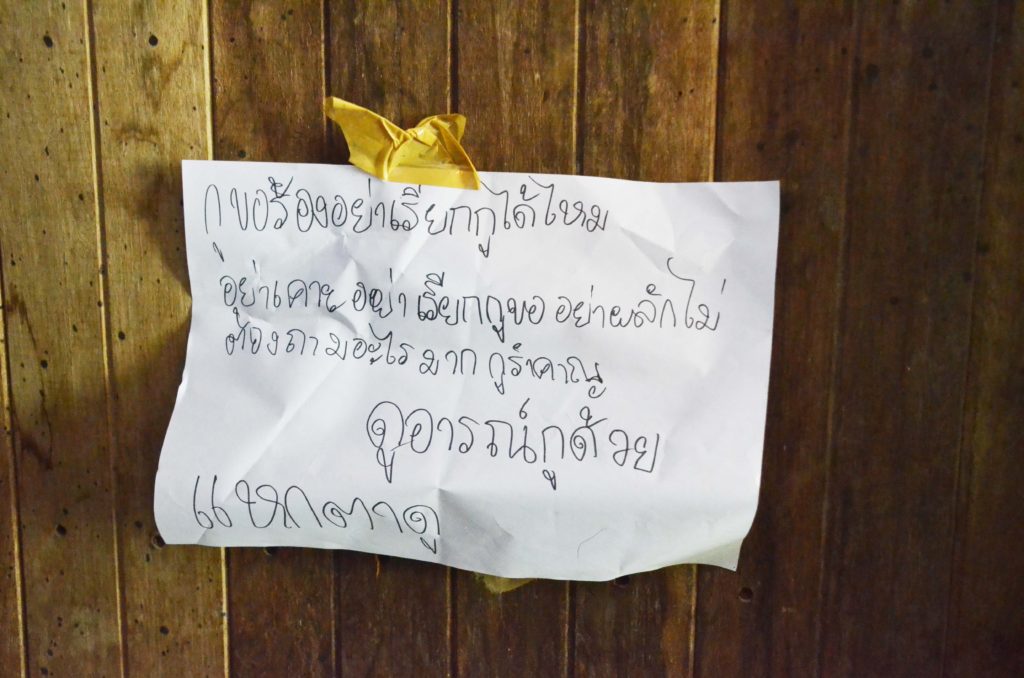 กุขอร้องอย่าเรียกกูได้ไหม
อย่าเคาะ อย่า เรียกกูขอ อย่าผลักไม่
ต้องถามอะไร มาก กูรำคาญ
ดูอารณ์กูด้วย
แหกตาดู